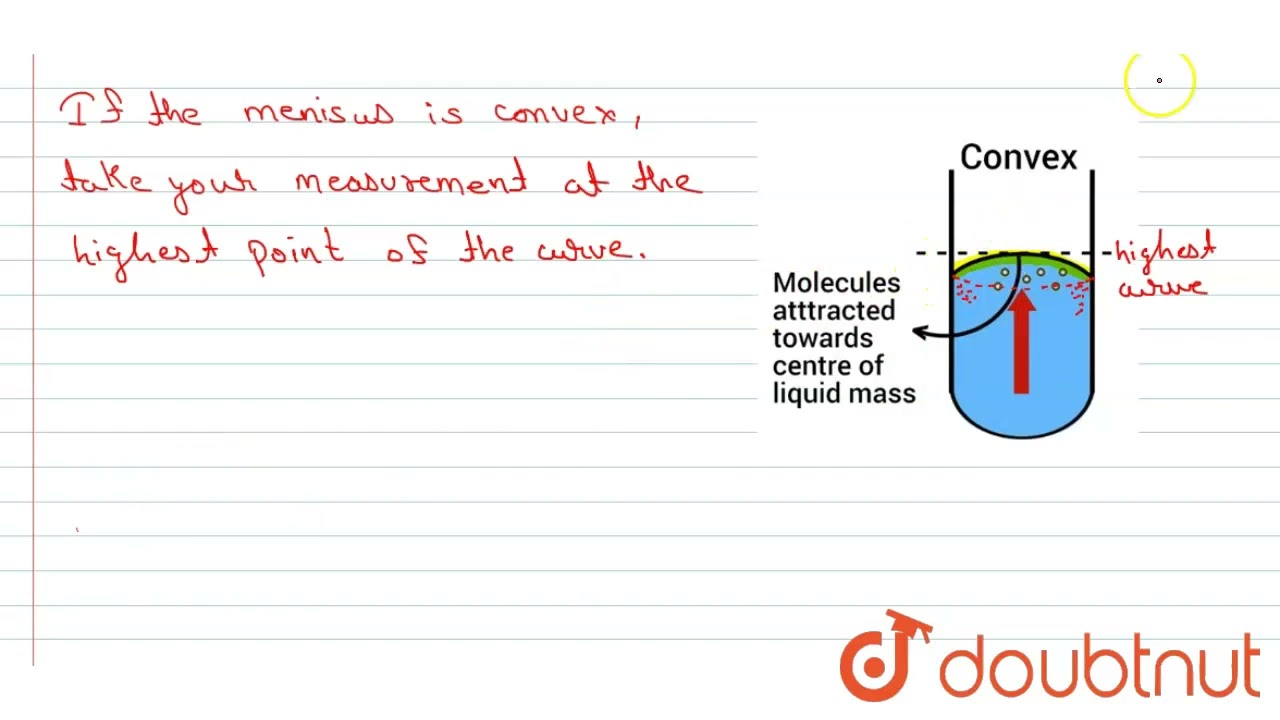 If the menisus is convex,
take your measurement at the
highest point of the curve.
Convex
highest
curve
Molecules
atttracted
towards
centre of
liquid mass
doubtnut